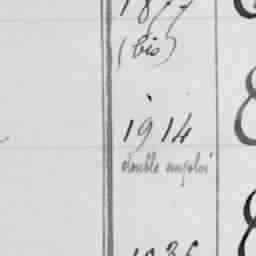 1877
(bis)
1914
double emploi